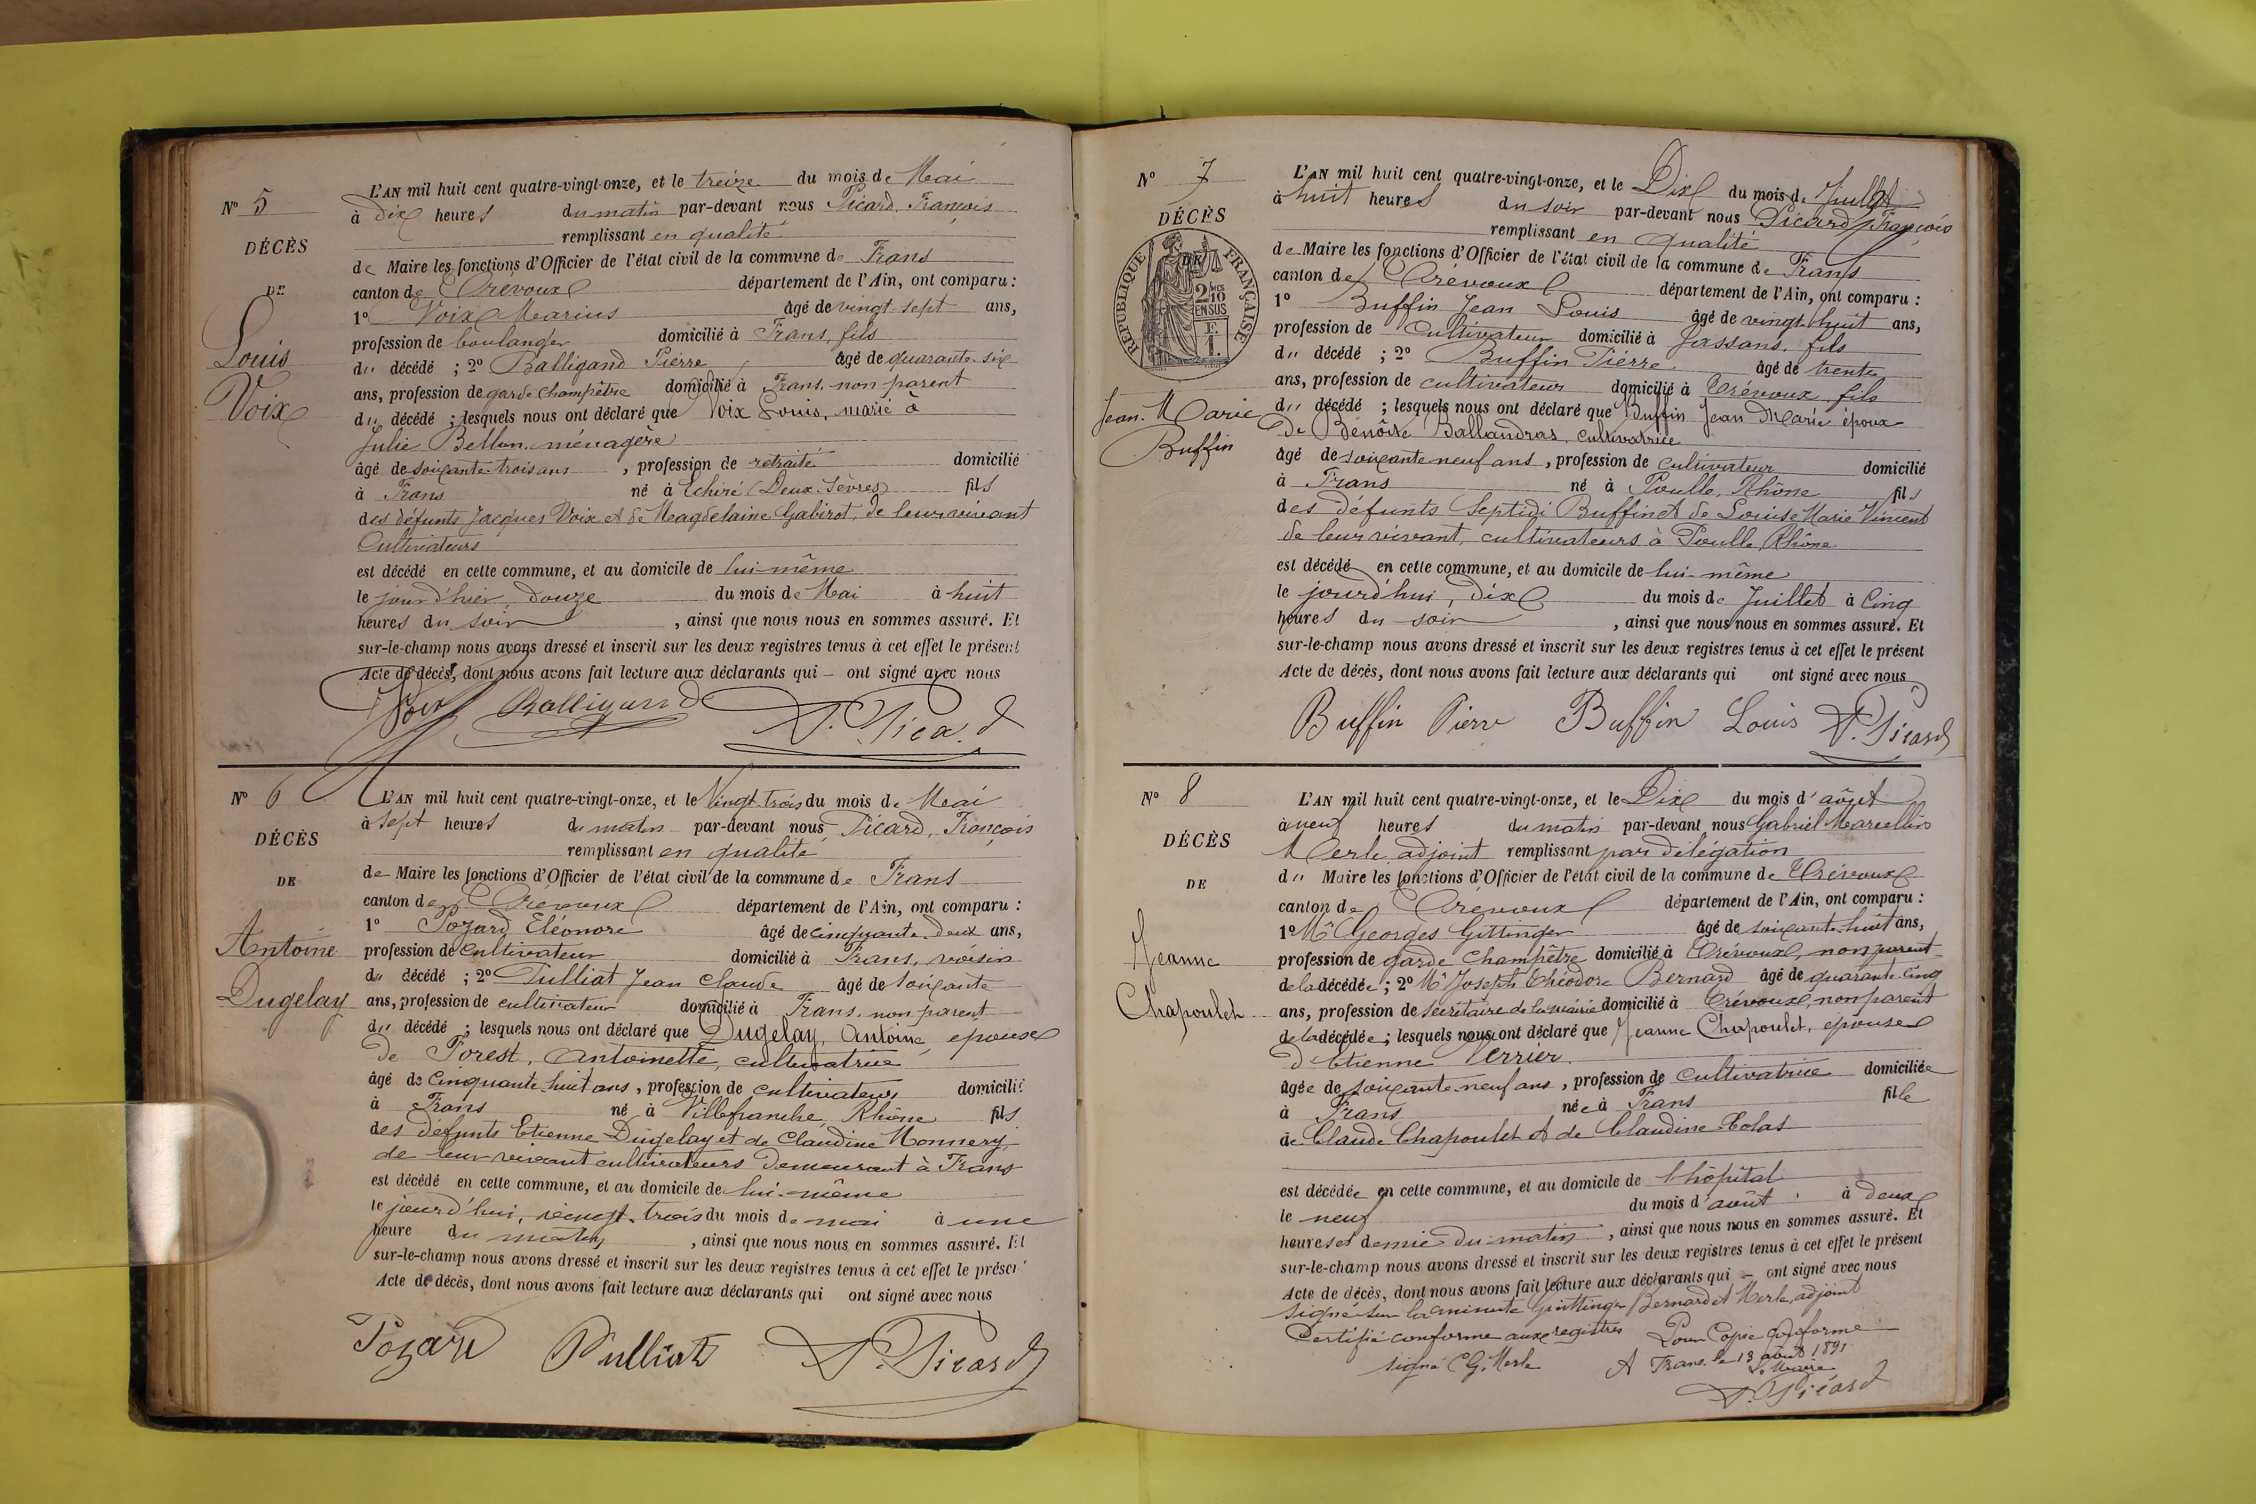 N° 5
DÉCÈS
DE
Louis
Voix
L'AN mil huit cent quatre-vingt-onze, et le treize du mois de Mai
à dix heures du matin par-devant nous Picard, François
remplissant en qualité
de Maire les fonctions d'Officier de l'état civil de la commune de Frans
canton de Trévoux département de l'Ain, ont comparu :
1° Voix Marius âgé de vingt-sept ans,
profession de boulanger domicilié à Frans, fils
du décédé ; 2° Balligand Pierre, âgé de quarante-six
ans, profession de garde champêtre domicilié à Frans, non parent
du décédé ; lesquels nous ont déclaré que Voix Louis, marié à
Julie Bellon, ménagère
âgé de soixante-trois ans, profession de retraité domicilié
à Frans né à Echiré (Deux-Sèvres) fils
des défunts Jacques Voix et de Magdelaine Gabirot, de leur vivant
Cultivateurs
est décédé en cette commune, et au domicile de lui-même
le jour d'hier, douze du mois de Mai à huit
heures du soir, ainsi que nous nous en sommes assuré. Et
sur-le-champ nous avons dressé et inscrit sur les deux registres tenus à cet effet le présent
Acte de décès, dont nous avons fait lecture aux déclarants qui – ont signé avec nous
Voix Balligand F. Picard
N° 6
DÉCÈS
DE
Antoine
Dugelay
L'AN mil huit cent quatre-vingt-onze, et le Vingt-trois du mois de Mai
à sept heures du matin par-devant nous Picard, François
remplissant en qualité
de Maire les fonctions d'Officier de l'état civil de la commune de Frans
canton de Trévoux département de l'Ain, ont comparu :
1° Pozard Eléonore âgé de cinquante-deux ans,
profession de cultivateur domicilié à Frans, voisin
du décédé ; 2° Pulliat Jean Claude âgé de soixante
ans, profession de cultivateur domicilié à Frans, non parent
du décédé ; lesquels nous ont déclaré que Dugelay, Antoine, epoux
de Forest, Antoinette, cultivatrice
âgé de Cinquante huit ans, profession de cultivateur domicilié
à Frans né à Villefranche, Rhône fils
des défunts Etienne Dugelay et de Claudine Monnery,
de leur vivant cultivateurs demeurant à Frans
est décédé en cette commune, et au domicile de lui-même
le jourd'hui, vingt-trois du mois de mai à une
heure du matin, ainsi que nous nous en sommes assuré. Et
sur-le-champ nous avons dressé et inscrit sur les deux registres tenus à cet effet le présent
Acte de décès, dont nous avons fait lecture aux déclarants qui ont signé avec nous
Pozard Pulliat F. Picard
N° 7
DÉCÈS
RÉPUBLIQUE FRANÇAISE
2/10 EN SUS
Jean-Marie
Buffin
L'AN mil huit cent quatre-vingt-onze, et le Dix du mois de Juillet
à huit heures du soir par-devant nous Picard, François
remplissant en qualité
de Maire les fonctions d'Officier de l'état civil de la commune de Frans
canton de Trévoux département de l'Ain, ont comparu :
1° Buffin Jean Louis âgé de vingt-huit ans,
profession de Cultivateur domicilié à Jassans, fils
du décédé ; 2° Buffin Pierre, âgé de trente
ans, profession de cultivateur domicilié à Trévoux, fils
du décédé ; lesquels nous ont déclaré que Buffin Jean Marie époux
de Benôite Ballandras, cultivatrice
âgé de soixante neuf ans, profession de cultivateur domicilié
à Frans né à Poulle, Rhône fils
des défunts Septidi Buffin et de Louise Marie Vincent
de leur vivant, cultivateurs à Poulle, Rhône
est décédé en cette commune, et au domicile de lui-même
le jourd'hui, dix du mois de Juillet à Cinq
heures du soir, ainsi que nous nous en sommes assuré. Et
sur-le-champ nous avons dressé et inscrit sur les deux registres tenus à cet effet le présent
Acte de décès, dont nous avons fait lecture aux déclarants qui ont signé avec nous
Buffin Pierre Buffin Louis F. Picard
N° 8
DÉCÈS
DE
Jeanne
Chapoulet
L'AN mil huit cent quatre-vingt-onze, et le Dix du mois d'août
à neuf heures du matin par-devant nous Gabriel Marcellin
Merle, adjoint remplissant par délégation
du Maire les fonctions d'Officier de l'état civil de la commune de Trévoux
canton de Trévoux département de l'Ain, ont comparu :
1° Mr Georges Gittinger âgé de soixante-huit ans,
profession de garde champêtre domicilié à Trévoux, non parent
de la décédée ; 2° Mr Joseph Théodore Bernard âgé de quarante-cinq
ans, profession de secrétaire de la mairie domicilié à Trévoux, non parent
de la décédée ; lesquels nous ont déclaré que Jeanne Chapoulet, épouse
d'Etienne Perrier
âgée de soixante-neuf ans, profession de cultivatrice domiciliée
à Frans née à Frans fille
de Claude Chapoulet et de Claudine Colas
est décédée en cette commune, et au domicile de l'hôpital
le neuf du mois d'août à deux
heures et demie du matin, ainsi que nous nous en sommes assuré. Et
sur-le-champ nous avons dressé et inscrit sur les deux registres tenus à cet effet le présent
Acte de décès, dont nous avons fait lecture aux déclarants qui – ont signé avec nous
signé sur la minute Guittinger Bernard et Merle, adjoint
Certifié conforme aux registres Pour Copie Conforme
signé C G. Merle A Frans le 13 août 1891
Le Maire
F. Picard